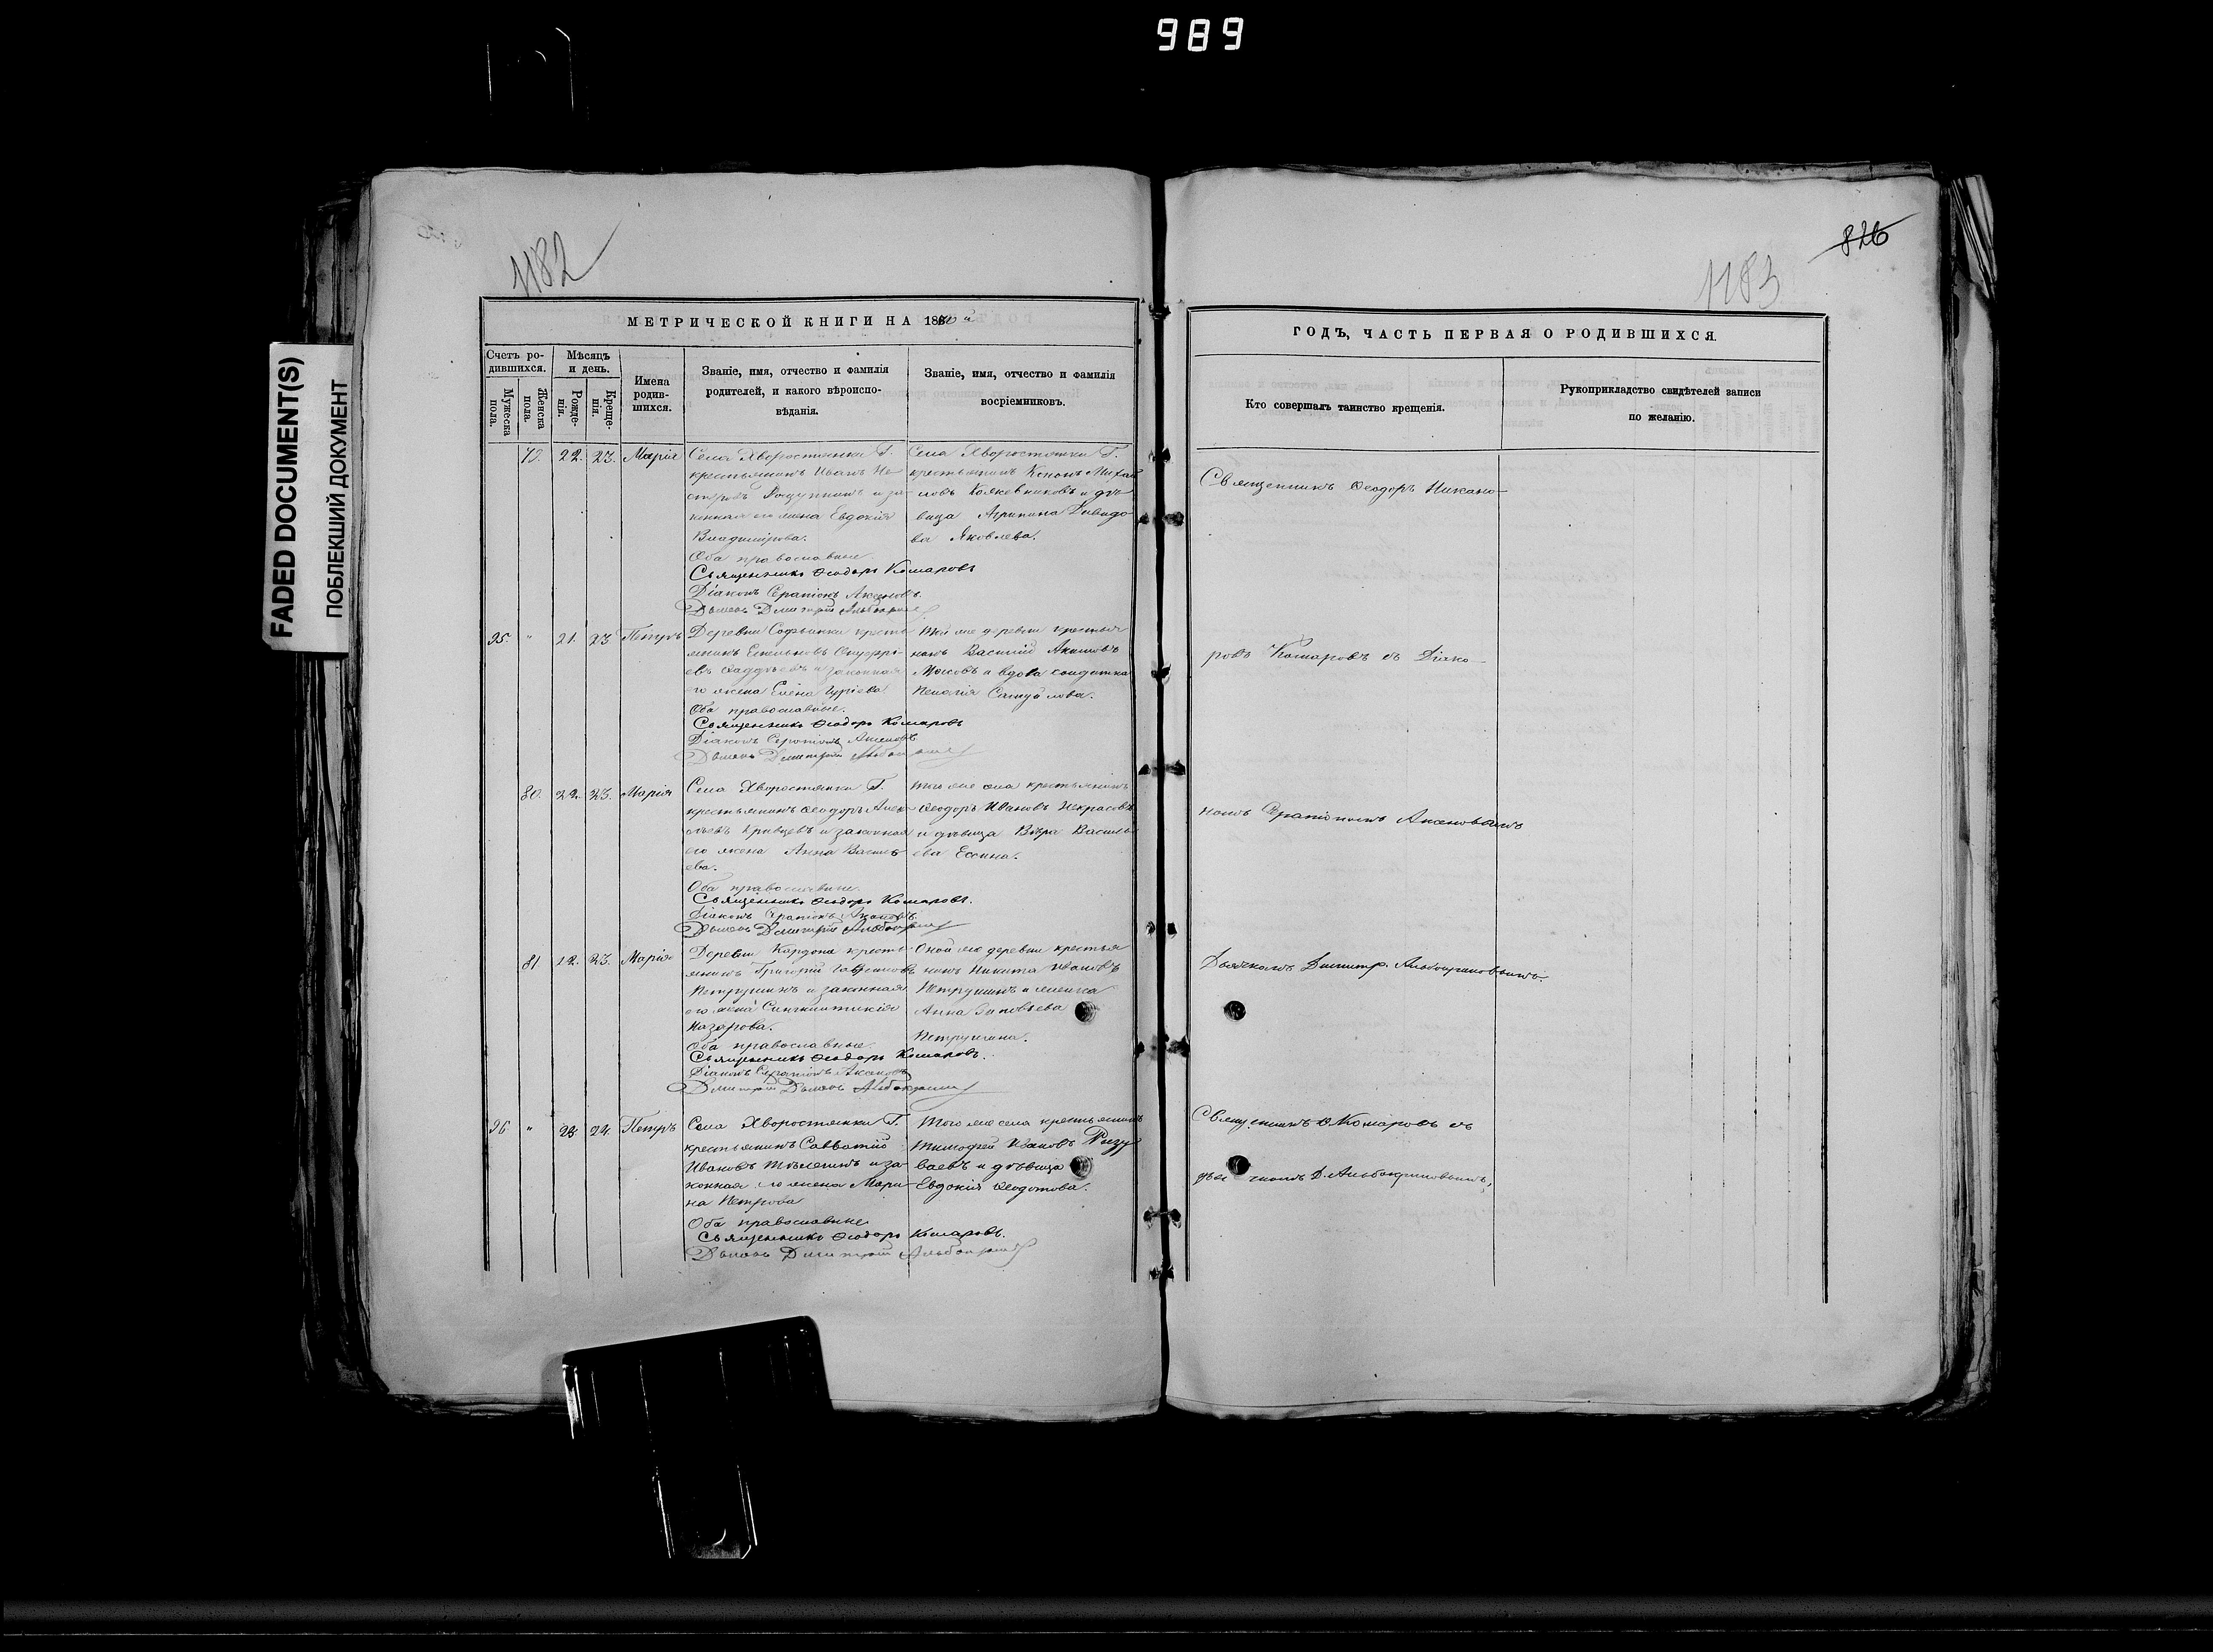 989
FADED DOCUMENT(S)
ПОБЛЕКШИЙ ДОКУМЕНТ
1182
МЕТРИЧЕСКОЙ КНИГИ НА 188
Счетъ ро-
дившихся.
Мужеска
пола.
Женска
пола.
Мѣсяцъ
и день.
Рожде-
нія.
Креще-
нія.
Имена
родив-
шихся.
Званіе, имя, отчество и фамилія
родителей, и какого вѣроиспо-
вѣданія.
Званіе, имя, отчество и фамилія
воспріемниковъ.
79. 22. 23. Марія
Села Хворостянки Г.
крестьянинъ Иванъ Не
стеровъ и за-
конная его жена Евдокія
Владимірова.
Оба православные.
Священникъ Ѳеодоръ Комаровъ
Діаконъ Серапіонъ Аксеновъ.
Дьячекъ Димитрій
Села Хворостянки Г.
крестьянинъ Ксенофъ Михай
ловъ Кожевниковъ и дѣ-
вица Агрипина Давидо
ва Яковлева.
95. " 21. 23 Петръ
Деревни Софьинки кресть
янинъ Емельянъ Онуфрі-
евъ Фаддѣевъ и законная
его жена Елена Гуріева.
Оба православные.
Священникъ Ѳеодоръ Комаровъ
Діаконъ Серапіонъ Аксеновъ
Дьячекъ Димитрій
Той же деревни крестья
нинъ Василій Акимовъ
и вдова солдатка
Пелагія Самуйлова.
80. 22. 23. Марія
Села Хворостянки Г.
крестьянинъ Ѳеодоръ Алек-
сѣевъ Кривцевъ и законная
его жена Анна Василь
ева.
Оба православные.
Священникъ Ѳеодоръ Комаровъ.
Діаконъ Серапіонъ Аксеновъ.
Дьячекъ Димитрій
Того же села крестьянинъ
Ѳеодоръ Ивановъ Некрасовъ
и дѣвица Вѣра Василь
ева Есина.
81 12. 23. Марія
Деревни Кардона кресть
янинъ Григорій
Петрушинъ и законная
его жена Синклитикія
Назарова.
Оба православные.
Священникъ Ѳеодоръ Комаровъ.
Діаконъ Серапіонъ Аксеновъ
Димитрій Дьячекъ
Оной же деревни крестья
нинъ Никита Ивановъ
Петрушинъ и
Анна Зиновьева
Петрушина.
96 " 23. 24. Петръ
Села Хворостянки Г.
крестьянинъ Савватій
Ивановъ и за-
конная его жена Мари
на Петрова
Оба православные
Священникъ Ѳеодоръ Комаровъ.
Дьячекъ Димитрій
Того же села крестьянинъ
Тимофей Ивановъ Ризу
ваевъ и дѣвица
Евдокія Ѳеодотова.
826
1183
ГОДЪ, ЧАСТЬ ПЕРВАЯ О РОДИВШИХСЯ.
Кто совершалъ таинство крещенія.
Рукоприкладство свидѣтелей записи
по желанію.
Священникъ Ѳеодоръ Никано-
ровъ Комаровъ съ Діако-
номъ Серапіономъ Аксеновымъ
Дьячкомъ Димитр. Альбокриновымъ.
Священникъ Ѳ. Комаровъ съ
дьячкомъ Д. Альбокриновымъ.